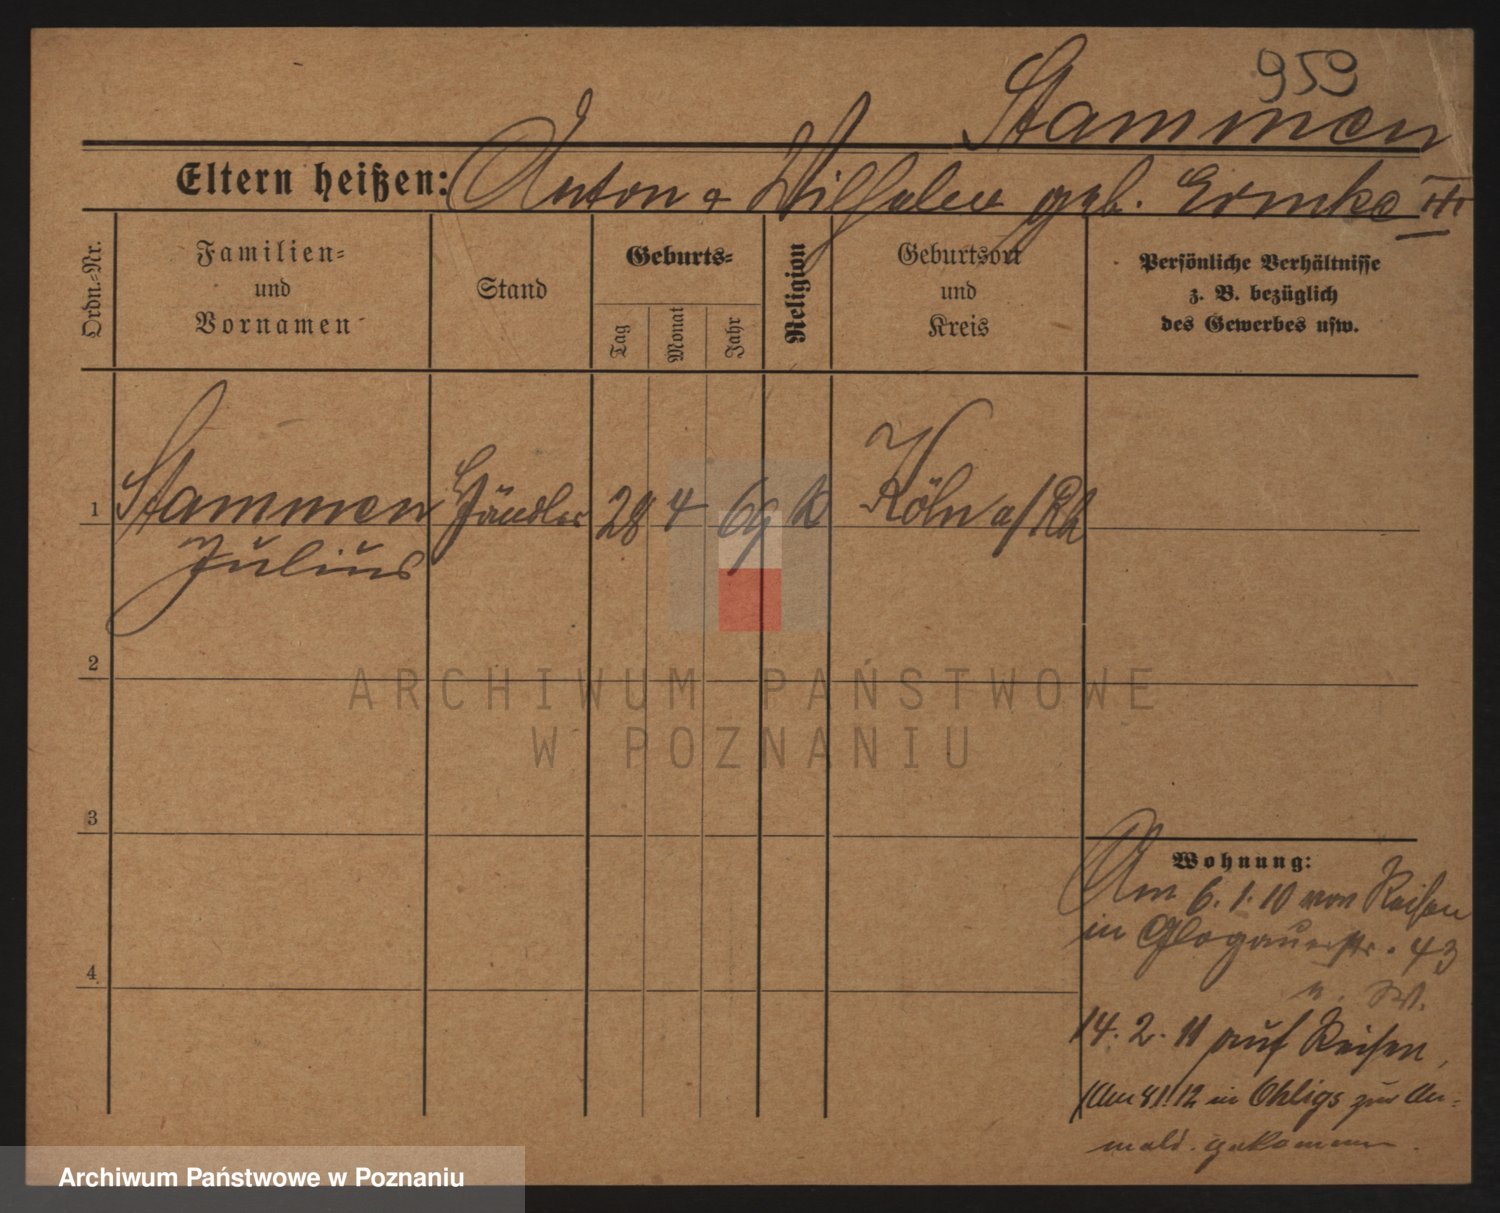 959
Stammen
Eltern heißen: Anton & Wilhelm geb. Ermke
Ordn.-Nr.
Familien-
und
Vornamen
Stand
Geburts-
Tag
Monat
Jahr
Religion
Geburtsort
und
Kreis
Persönliche Verhältnisse
z. B. bezüglich
des Gewerbes usw.
1 Stammen Händler 28 4 69 k Köln a/Rh
Julius
2
3
4
Wohnung:
Am 6.1.10 von Reisen
in Glogauerstr. 43
14.2.11 auf Reisen,
Am 8.1.12 in Ohligs zur An-
meld. gekommen.
ARCHIWUM PAŃSTWOWE
W POZNANIU
Archiwum Państwowe w Poznaniu